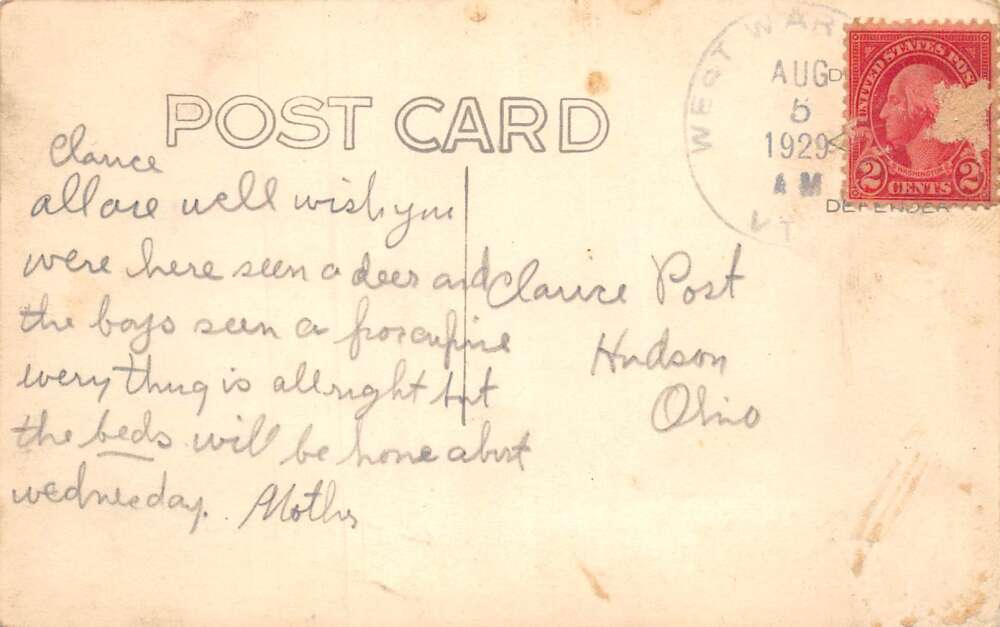 POST CARD
WEST WAR
AUG
5
1929
AM
VT
UNITED STATES POS
WASHINGTON
2 CENTS 2
DEFENDER
Clarice
all are well wish you
were here seen a deer and
the boys seen a porcupine
every thing is allright but
the beds will be home abut
wednesday. Mother
Clarice Post
Hudson
Ohio